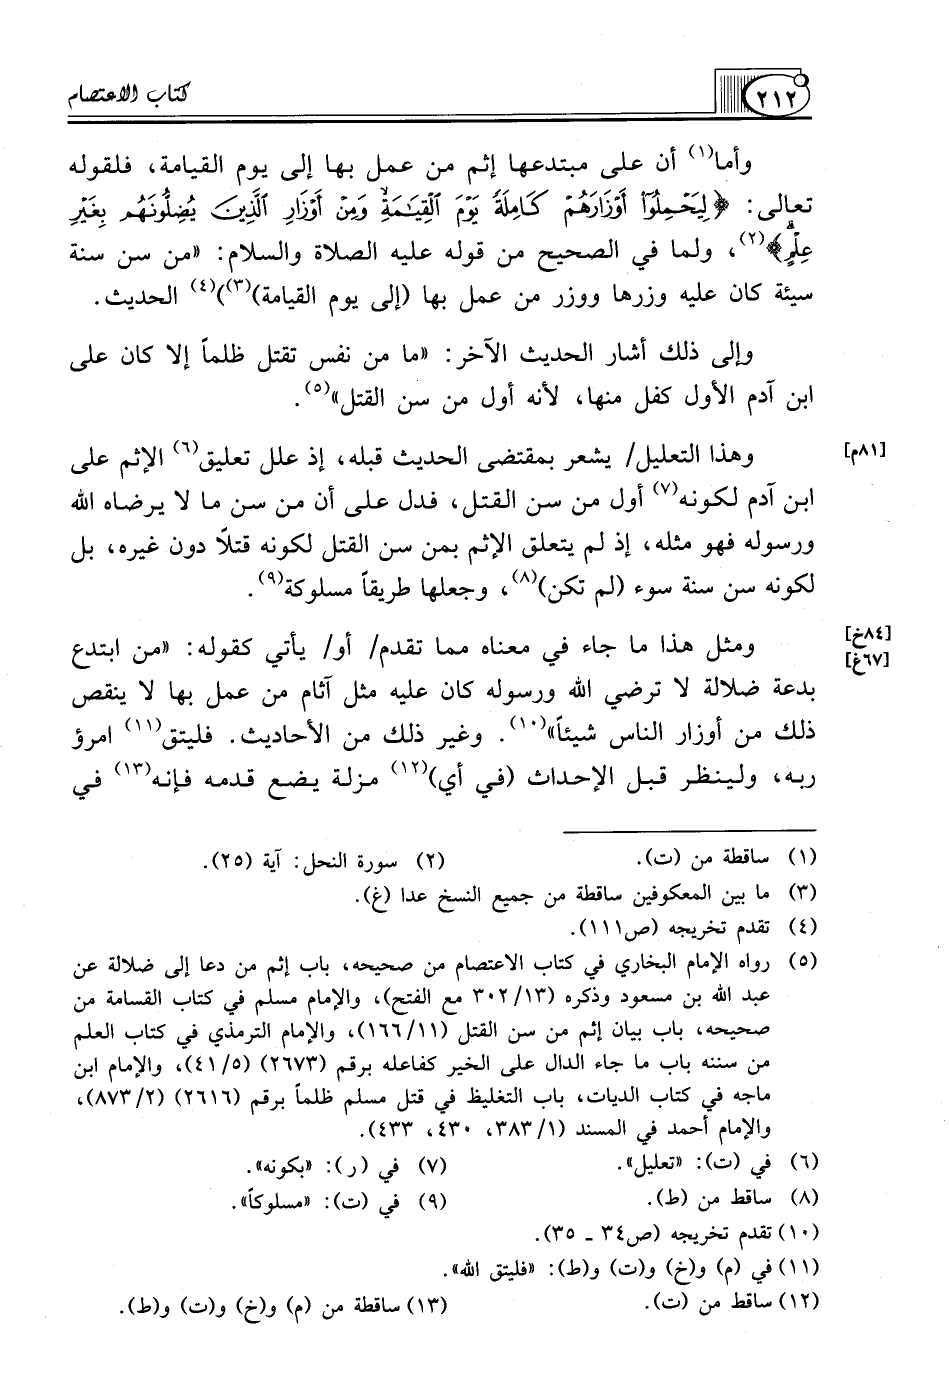 ٢١٢ كتاب الاعتصام
وأما(١) أن على مبتدعها إثم من عمل بها إلى يوم القيامة، فلقوله
تعالى: ﴿لِيَحْمِلُوٓا۟ أَوْزَارَهُمْ كَامِلَةً يَوْمَ ٱلْقِيَٰمَةِ وَمِنْ أَوْزَارِ ٱلَّذِينَ يُضِلُّونَهُم بِغَيْرِ
عِلْمٍ﴾(٢)، ولما في الصحيح من قوله عليه الصلاة والسلام: «من سن سنة
سيئة كان عليه وزرها ووزر من عمل بها (إلى يوم القيامة)(٣))(٤) الحديث.
وإلى ذلك أشار الحديث الآخر: «ما من نفس تقتل ظلماً إلا كان على
ابن آدم الأول كفل منها، لأنه أول من سن القتل»(٥).
[٨١م] وهذا التعليل/ يشعر بمقتضى الحديث قبله، إذ علل تعليق(٦) الإثم على
ابن آدم لكونه(٧) أول من سن القتل، فدل على أن من سن ما لا يرضاه الله
ورسوله فهو مثله، إذ لم يتعلق الإثم بمن سن القتل لكونه قتلاً دون غيره، بل
لكونه سن سنة سوء (لم تكن)(٨)، وجعلها طريقاً مسلوكة(٩).
[٨٤خ] ومثل هذا ما جاء في معناه مما تقدم/ أو/ يأتي كقوله: «من ابتدع
[٦٧غ]
بدعة ضلالة لا ترضي الله ورسوله كان عليه مثل آثام من عمل بها لا ينقص
ذلك من أوزار الناس شيئاً»(١٠). وغير ذلك من الأحاديث. فليتق(١١) امرؤ
ربه، ولينظر قبل الإحداث (في أي)(١٢) مزلة يضع قدمه فإنه(١٣) في
(١) ساقطة من (ت). (٢) سورة النحل: آية (٢٥).
(٣) ما بين المعكوفين ساقطة من جميع النسخ عدا (غ).
(٤) تقدم تخريجه (ص١١١).
(٥) رواه الإمام البخاري في كتاب الاعتصام من صحيحه، باب إثم من دعا إلى ضلالة عن
عبد الله بن مسعود وذكره (٣٠٢/١٣ مع الفتح)، والإمام مسلم في كتاب القسامة من
صحيحه، باب بيان إثم من سن القتل (١٦٦/١١)، والإمام الترمذي في كتاب العلم
من سننه باب ما جاء الدال على الخير كفاعله برقم (٢٦٧٣) (٤١/٥)، والإمام ابن
ماجه في كتاب الديات، باب التغليظ في قتل مسلم ظلماً برقم (٢٦١٦) (٨٧٣/٢)،
والإمام أحمد في المسند (٣٨٣/١، ٤٣٠، ٤٣٣).
(٦) في (ت): «تعليل». (٧) في (ر): «بكونه».
(٨) ساقط من (ط). (٩) في (ت): «مسلوكاً».
(١٠) تقدم تخريجه (ص٣٤ ـ ٣٥).
(١١) في (م) و(خ) و(ت) و(ط): «فليتق الله».
(١٢) ساقط من (ت). (١٣) ساقطة من (م) و(خ) و(ت) و(ط).